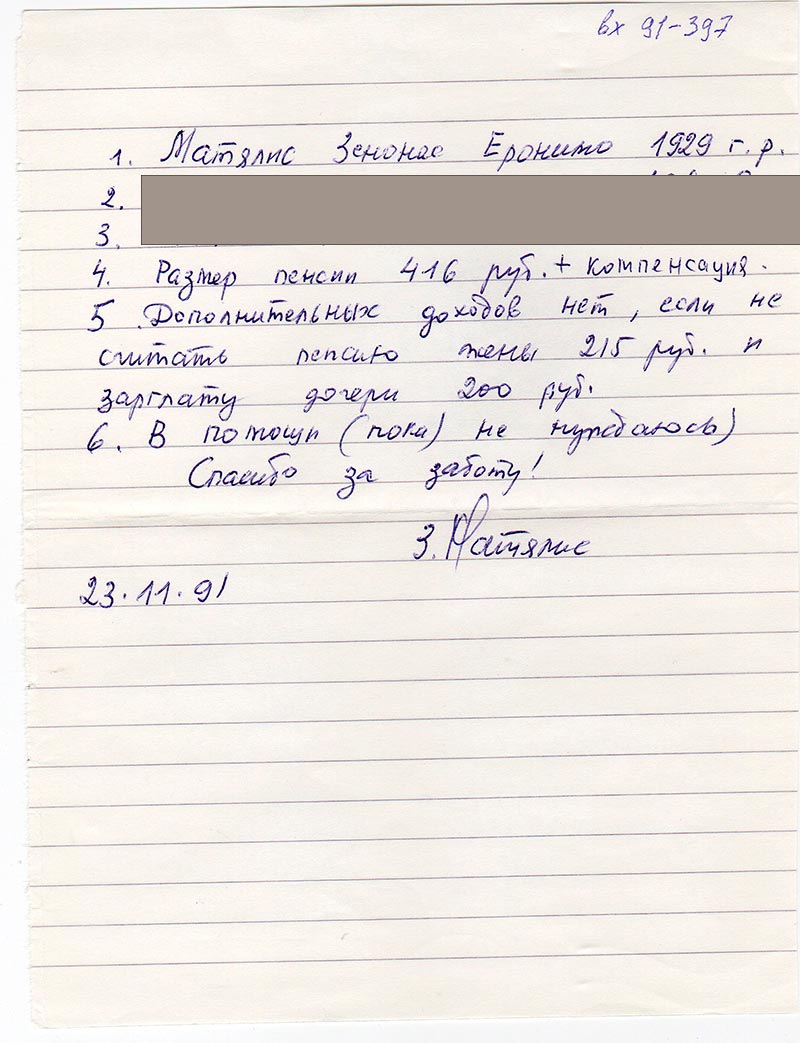 вх 91-397
1. Матялис Зенонас Еронимо 1929 г. р.
2.
3.
4. Размер пенсии 416 руб. + компенсация.
5. Дополнительных доходов нет, если не
считать пенсию жены 215 руб. и
зарплату дочери 200 руб.
6. В помощи (пока) не нуждаюсь)
Спасибо за заботу!
З. Матялис
23.11.91